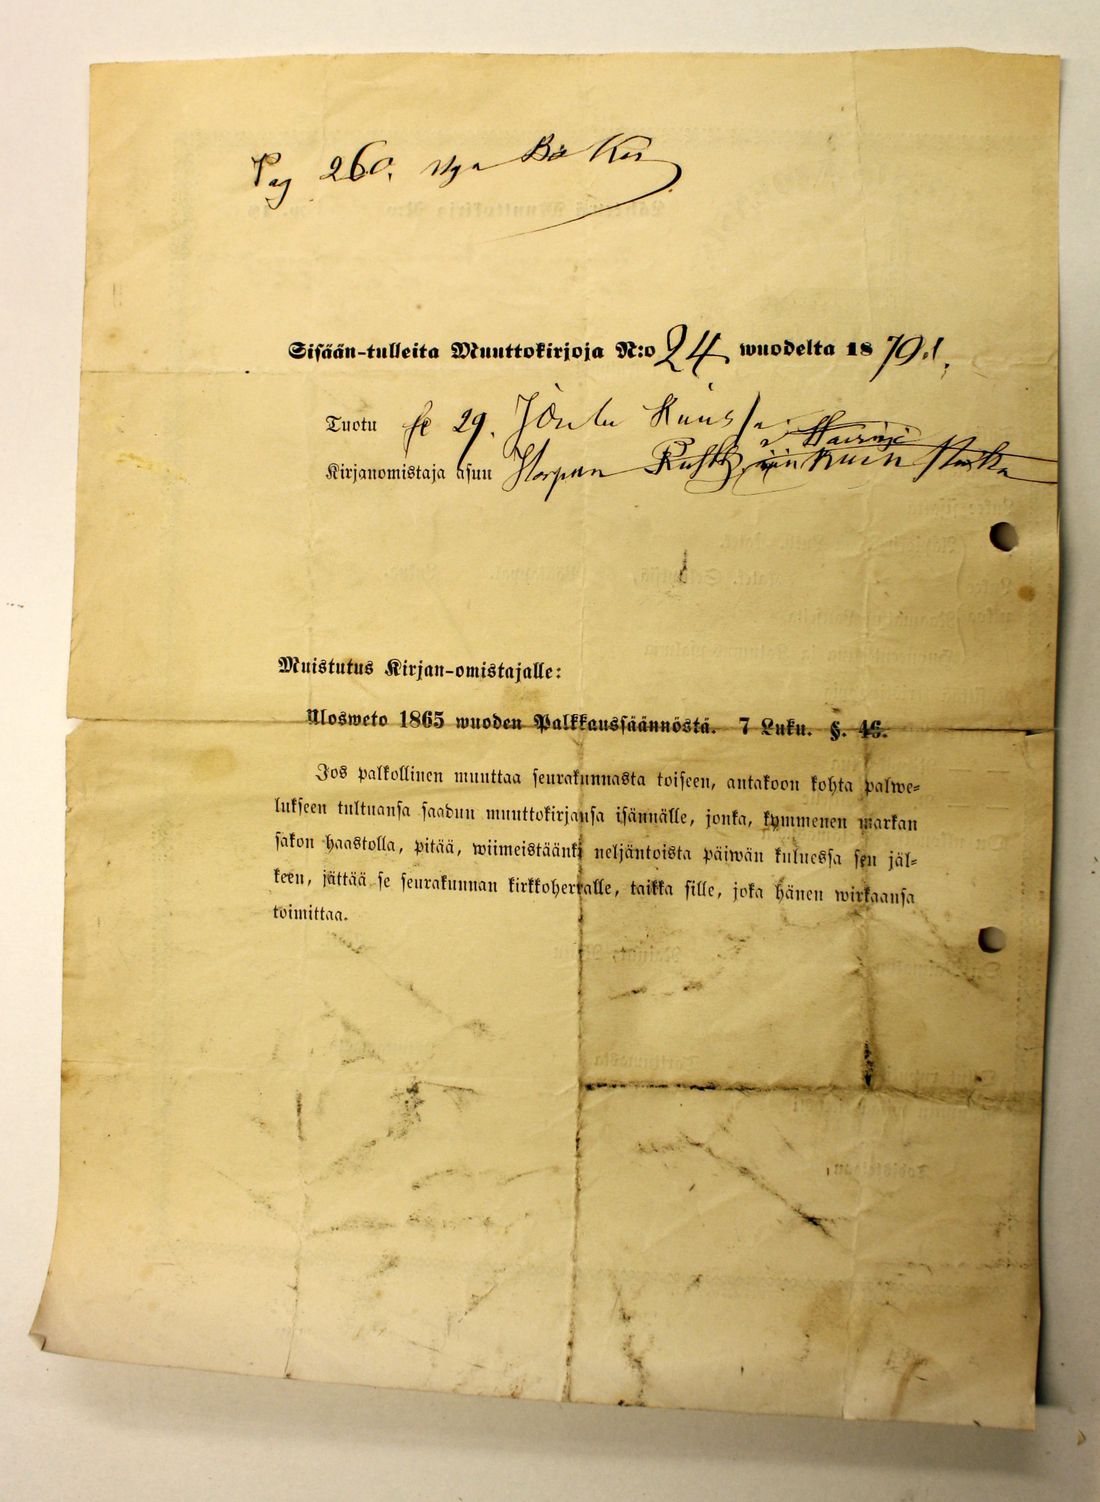 Pag 260.
Sisään-tulleita Muuttokirjoja N:o 24 wuodelta 1879.
Tuotu 29.
Kirjanomistaja asuu
Muistutus Kirjan-omistajalle:
Ulosweto 1865 wuoden Palkkaussäännöstä. 7 Luku. §. 46.
Jos palkollinen muuttaa seurakunnasta toiseen, antakoon kohta palwe-
lukseen tultuansa saadun muuttokirjansa isännälle, jonka, kymmenen markan
sakon haastolla, pitää, wiimeistäänki neljäntoista päiwän kuluessa sen jäl-
keen, jättää se seurakunnan kirkkoherralle, taikka sille, joka hänen wirkaansa
toimittaa.